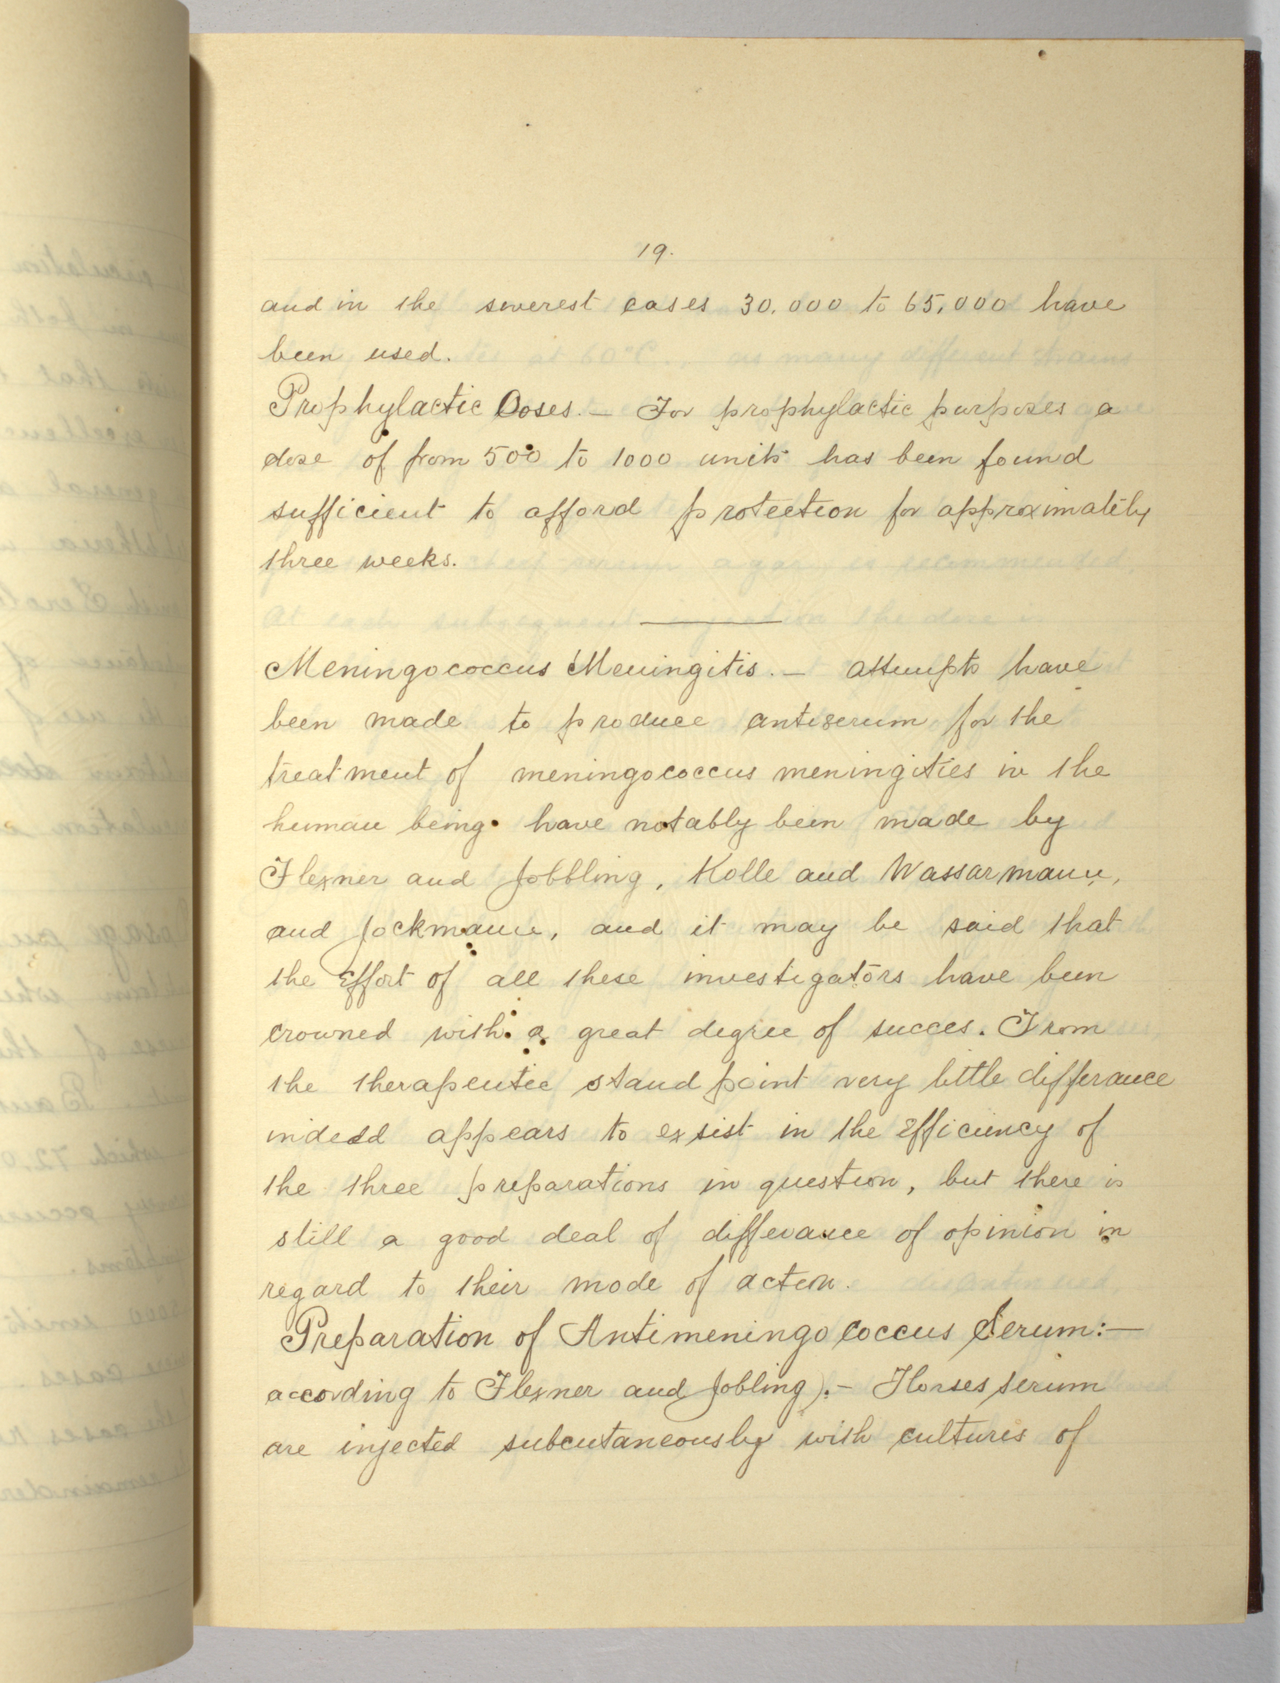 19.
and in the severest cases 30.000 to 65,000 have
been used.
Prophylactic Doses. — For prophylactic purposes a
dose of from 500 to 1000 units has been found
sufficient to afford protection for approximately
three weeks.
Meningococcus Meningitis. — Attempts have
been made to produce antiserum for the
treatment of meningococcus meningities in the
human being. have notably been made by
Flexner and Jobbling, Kolle and Wassarmann,
and Jockmann, and it may be said that
the Effort of all these investigators have been
crowned with a great degree of succes. From
the therapeutic stand point very little differance
indedd appears to exsist in the Efficiency of
the three preparations in question, but there is
still a good deal of differance of opinion in
regard to their mode of action.
Preparation of Antimeningococcus Serum:—
acording to Flexner and Jobling).— Horses serum
are injected subcutaneously with cultures of